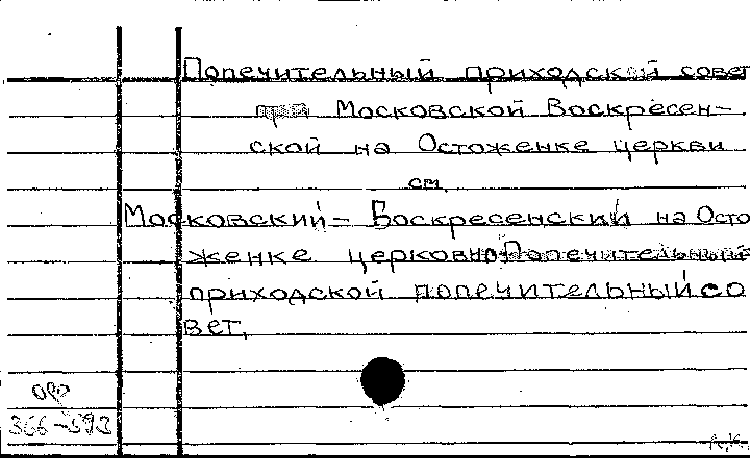 Попечительный приходский совет
при Московской Воскресен-
ской на Остоженке церкви
см.
Московский – Воскресенский на Осто
женке церковно-Попечительный
приходской попечительный со
вет,
ОРР
366-593